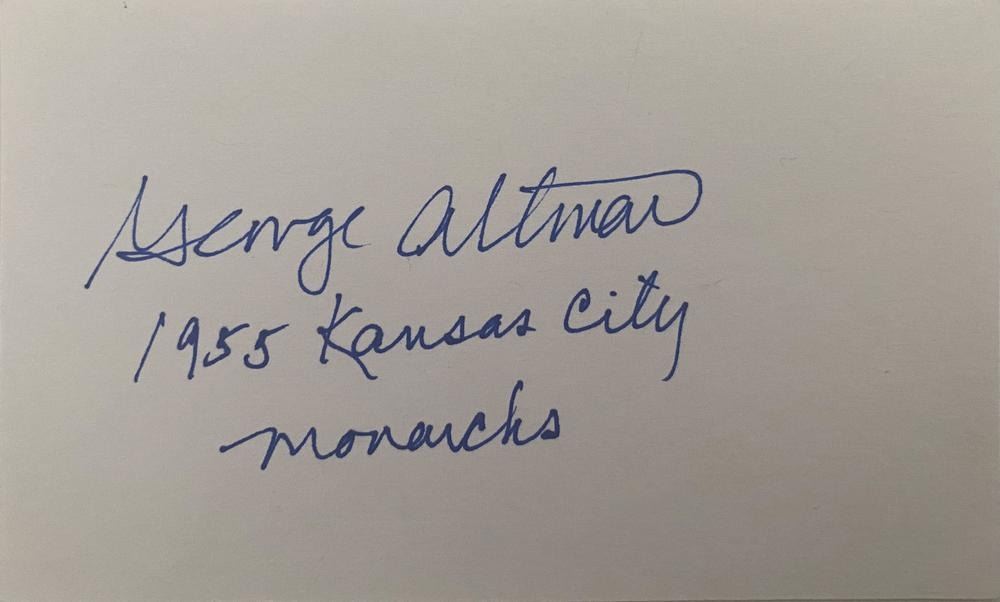 George Altman
1955 Kansas City
Monarchs